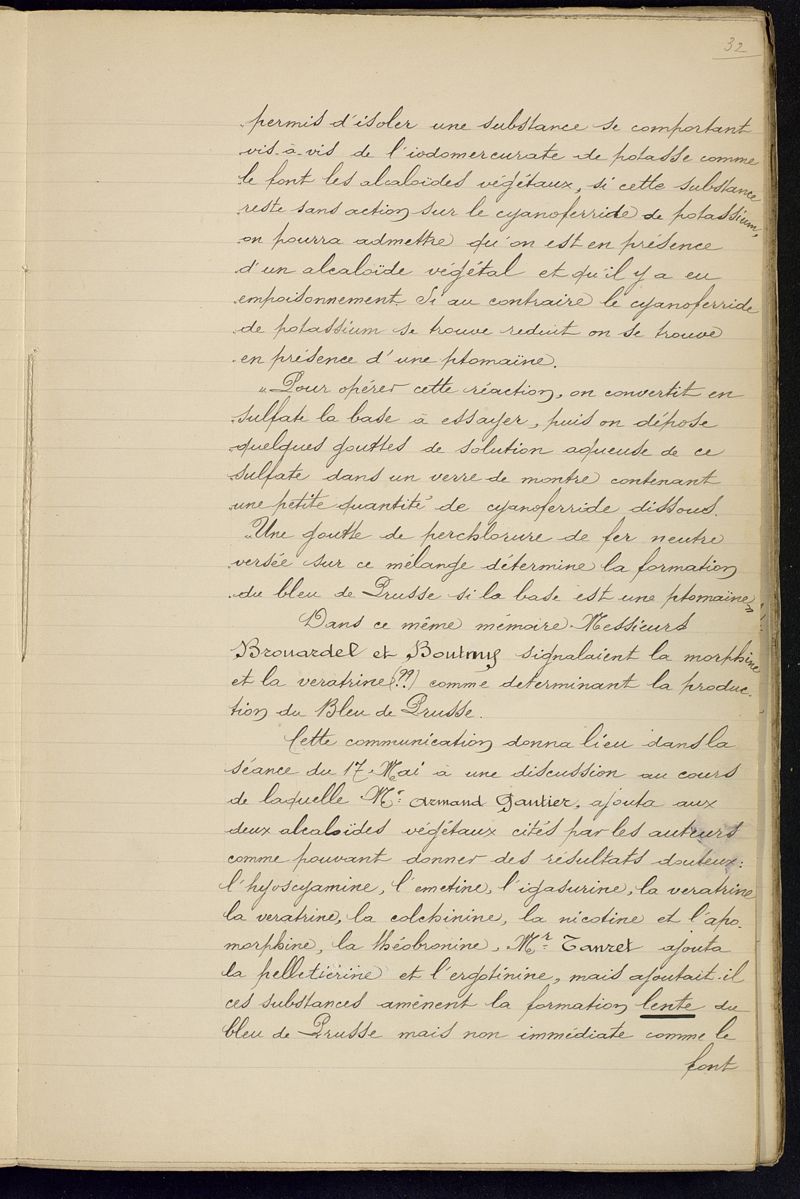 32
permis d'isoler une substance se comportant
vis-à-vis de l'iodomercurate de potasse comme
le font les alcaloïdes végétaux, si cette substance
reste sans action sur le cyanoferride de potassium,
on pourra admettre qu'on est en présence
d'un alcaloïde végétal et qu'il y a eu
empoisonnement. Si au contraire le cyanoferride
de potassium se trouve reduit on se trouve
en présence d'une ptomaïne.
"Pour opérer cette réaction, on convertit en
sulfate la base à essayer, puis on dépose
quelques gouttes de solution aqueuse de ce
sulfate dans un verre de montre contenant
une petite quantité de cyanoferride dissous.
"Une goutte de perchlorure de fer neutre
versée sur ce mélange détermine la formation
du bleu de Prusse si la base est une ptomaïne"
Dans ce même mémoire Messieurs
Brouardel et Boutmy signalaient la morphine
et la veratrine (??) comme determinant la produc-
tion du Bleu de Prusse.
Cette communication donna lieu dans la
séance du 17 Mai à une discussion au cours
de laquelle Mr Armand Gautier, ajouta aux
deux alcaloïdes végétaux cités par les auteurs
comme pouvant donner des résultats douteux:
l'hyoscyamine, l'emetine, l'igasurine, la veratrine
la veratrine, la colchinine, la nicotine et l'apo-
morphine, la théobronine, Mr Tanret ajouta
la pelletiérine et l'ergotinine, mais ajoutait-il
ces substances amènent la formation lente du
bleu de Prusse mais non immédiate comme le
font